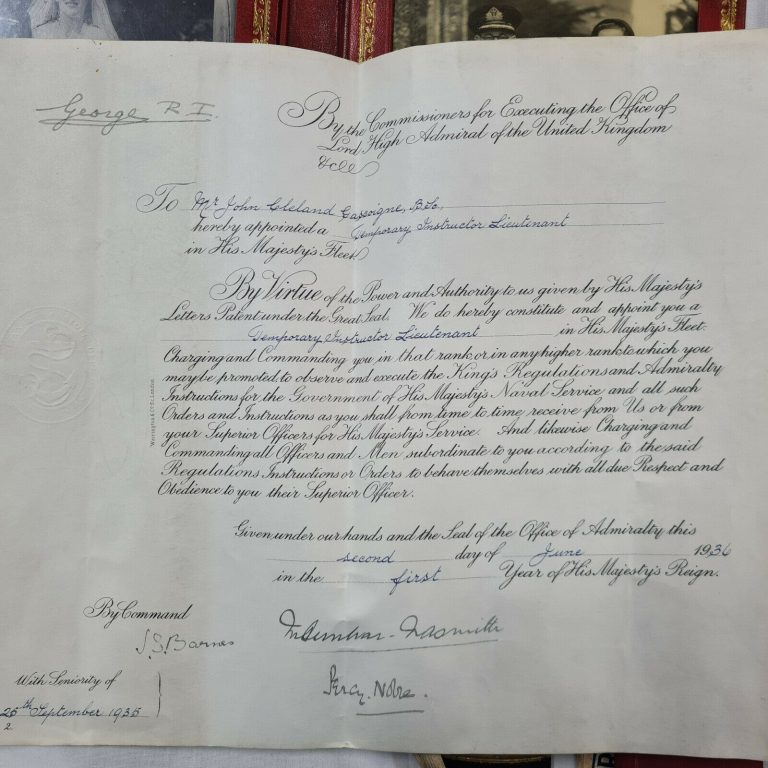 George R I.
By the Commissioners for Executing the Office of
Lord High Admiral of the United Kingdom
&c
To Mr John Cleland Gascoigne, B.Sc.
hereby appointed a Temporary Instructor Lieutenant
in His Majesty's Fleet
By Virtue of the Power and Authority to us given by His Majesty's
Letters Patent under the Great Seal. We do hereby constitute and appoint you a
Temporary Instructor Lieutenant in His Majesty's Fleet.
Charging and Commanding you in that rank or in any higher rank to which you
may be promoted to observe and execute the King's Regulations and Admiralty
Instructions for the Government of His Majesty's Naval Service and all such
Orders and Instructions as you shall from time to time receive from Us or from
your Superior Officers for His Majesty's Service. And likewise Charging and
Commanding all Officers and Men subordinate to you according to the said
Regulations Instructions or Orders to behave themselves with all due Respect and
Obedience to you their Superior Officer.
Given under our hands and the Seal of the Office of Admiralty this
second day of June 1936
in the first Year of His Majesty's Reign.
By Command
J.S. Barnes
Dunbar-Nasmith
Percy Noble.
With Seniority of
25th September 1935
2